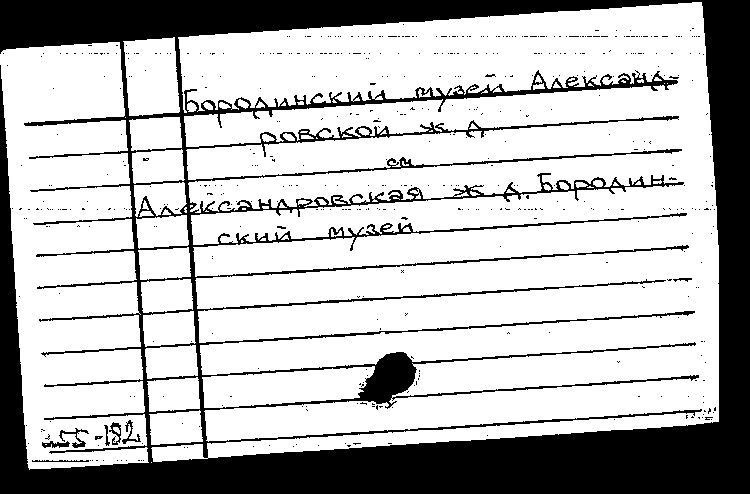 Бородинский музей Александ-
ровской ж. д
см
Александровская ж. д. Бородин-
ский музей
55-182